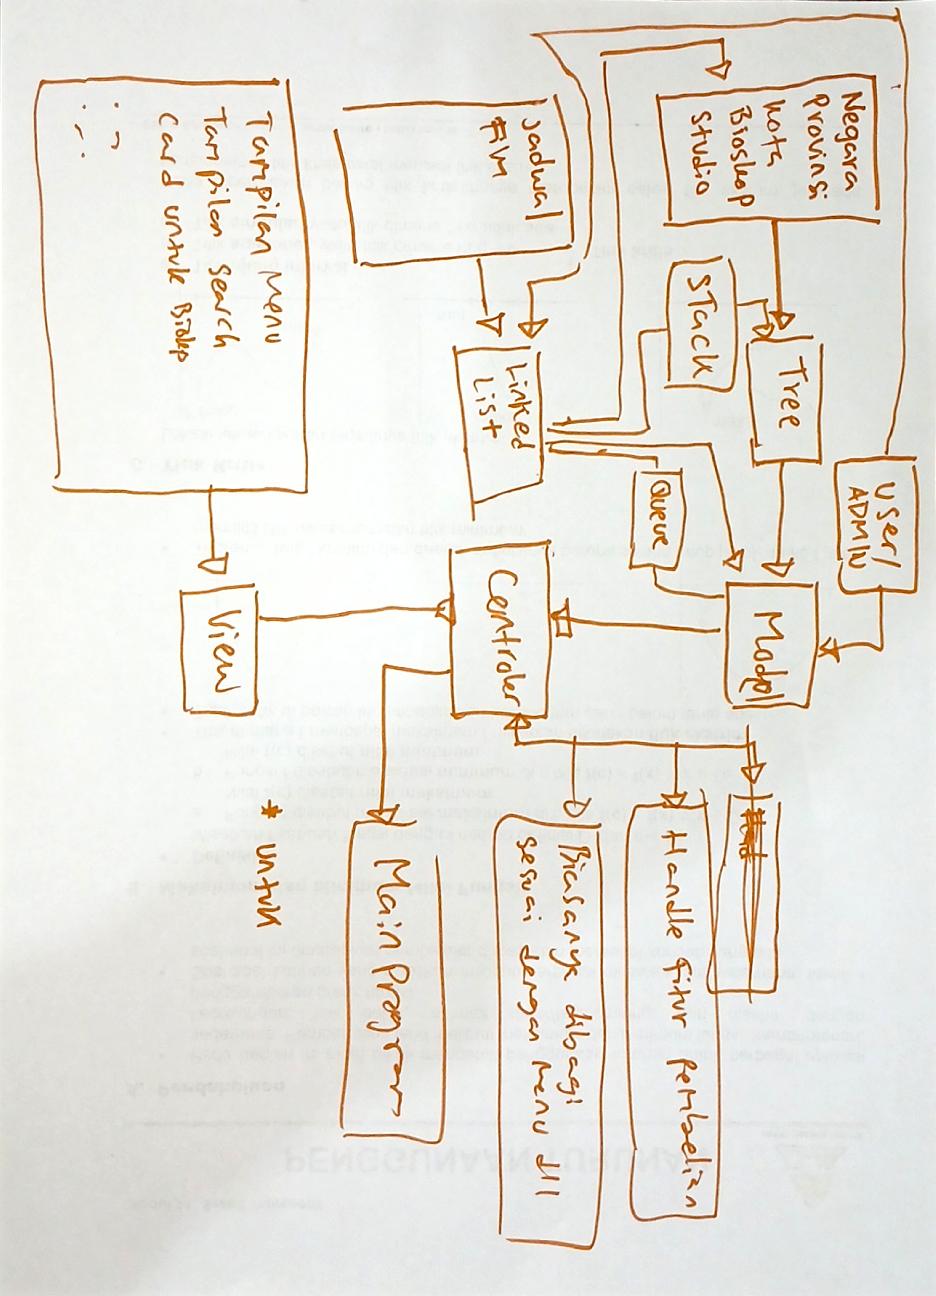 User/
ADMIN
Negara
Provinsi
Kota
Bioskop
Studio
Tree
Model
STack
Queue
Handle Fitur Pembelian
Biasanya dibagi
sesuai dengan Menu dll
Jadwal
Film
Linked
List
Controler
Main Program
Tampilan Menu
Tampilan Search
Card untuk Biokp
View
* untuk